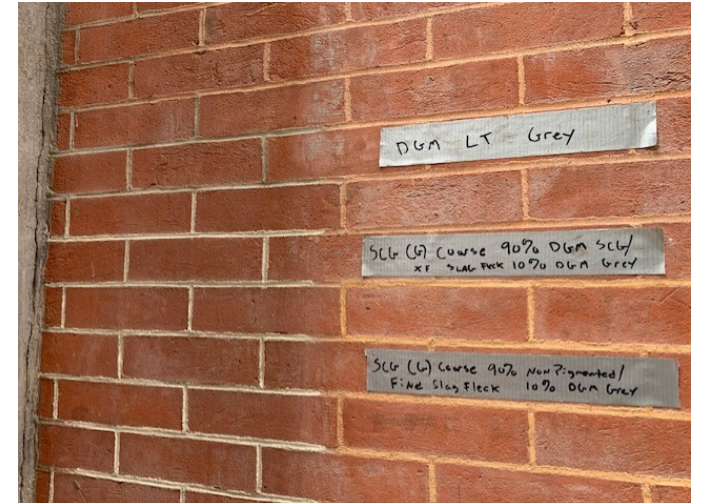 DGM LT Grey
SCG (G) Coarse 90% DGM SCG/
XF SLAG Fleck 10% DGM Grey
SCG (G) Coarse 90% Non Pigmented/
Fine Slag Fleck 10% DGM Grey